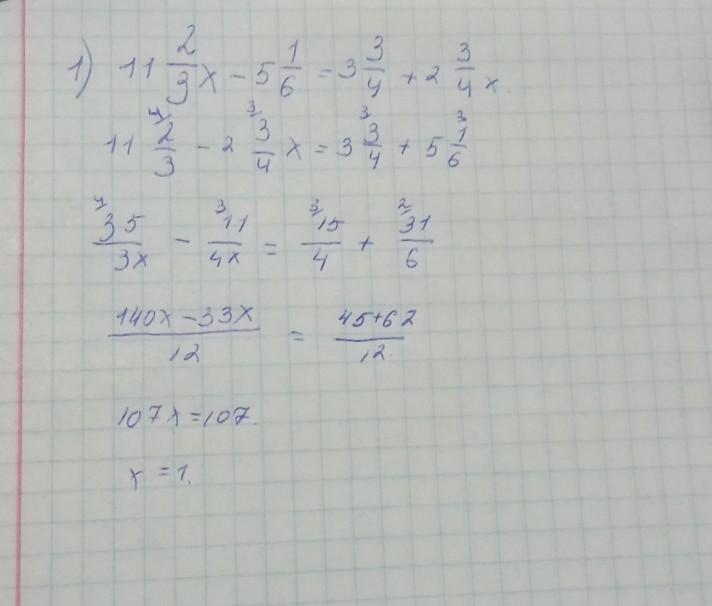 1) 11 2/3 x - 5 1/6 = 3 3/4 + 2 3/4 x.
11 2/3 - 2 3/4 x = 3 3/4 + 5 1/6
35/3x - 11/4x = 15/4 + 31/6
140x - 33x/12 = 45+62/12.
107x = 107.
x = 1.